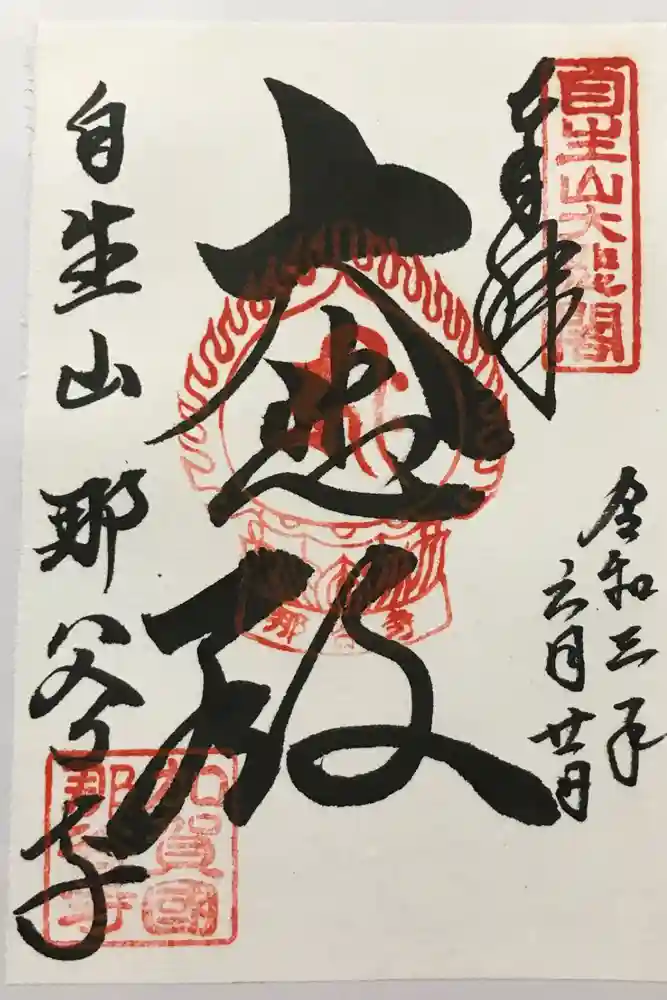 自生山大悲閣
奉拝
令和三年
六月廿日
大悲殿
自生山 那谷寺
加賀國
那谷寺